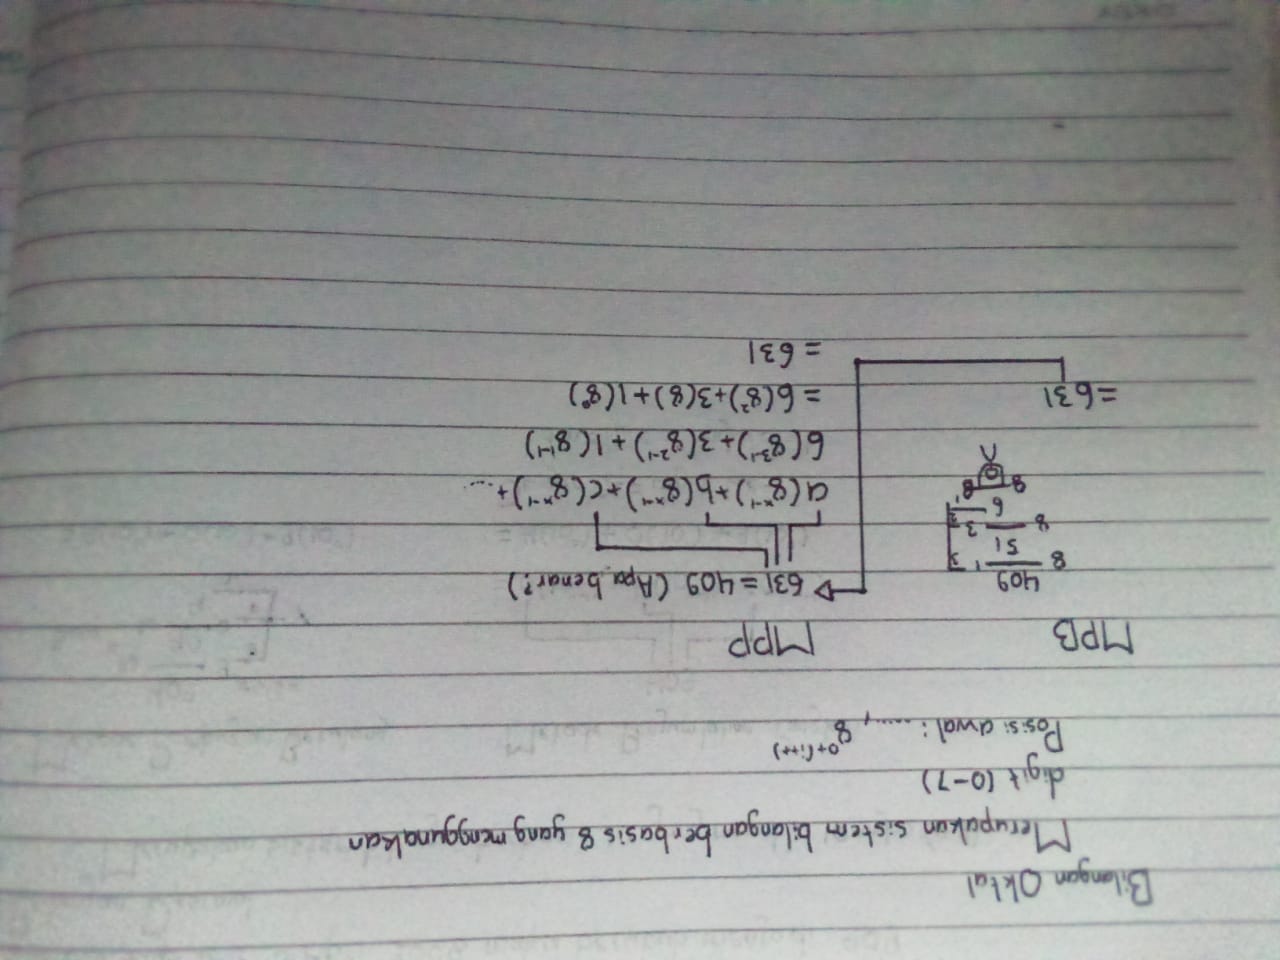 Bilangan Oktal
Merupakan sistem bilangan berbasis 8 yang menggunakan
digit (0-7)
Posisi awal: ....., 8^0+(i++)
MPB
409
8 51 1 3
8 6 3 2
8 0 6 1
= 631
MPP
631 = 409 (Apa benar?)
a(8^x-1) + b(8^x-1) + c(8^x-1) + ....
6(8^3-1) + 3(8^2-1) + 1(8^1-1)
= 6(8²) + 3(8) + 1(8⁰)
= 631